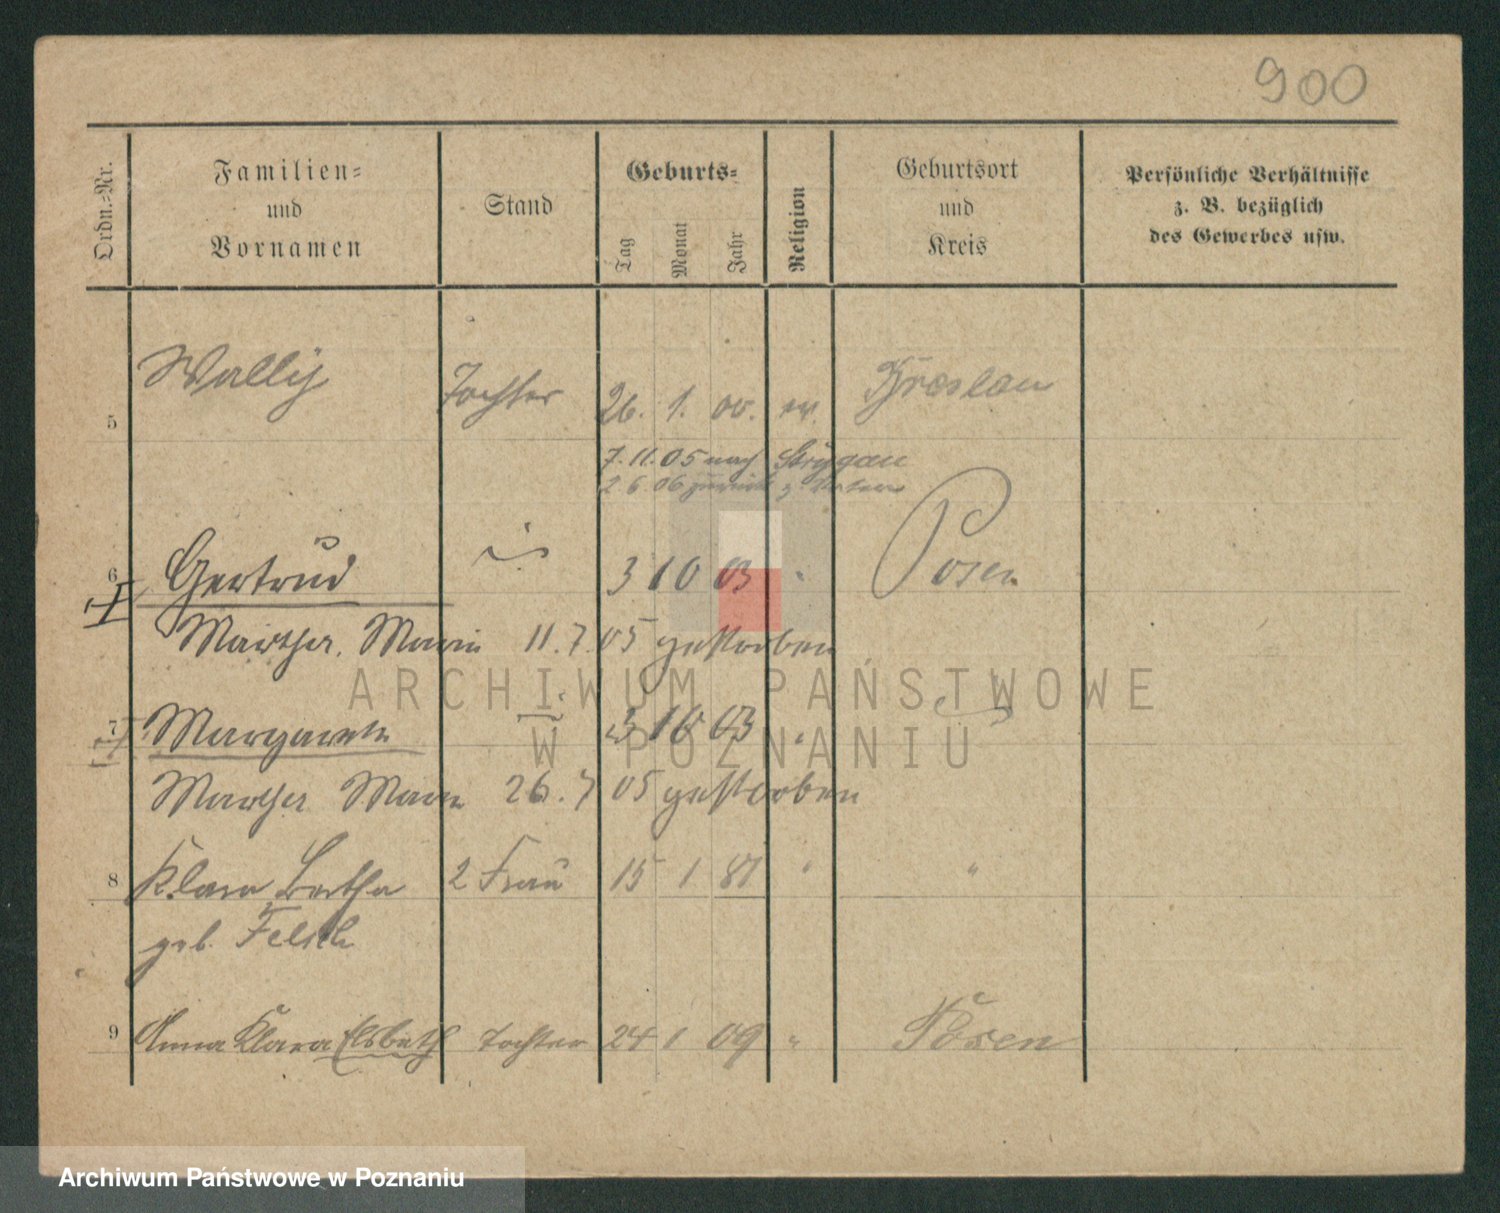 900
Ordn.-Nr.
Familien-
und
Vornamen
Stand
Geburts-
Tag
Monat
Jahr
Religion
Geburtsort
und
Kreis
Persönliche Verhältnisse
z. B. bezüglich
des Gewerbes usw.
5 Wally Tochter 26. 1. 00. ev. Breslau
7.11.05 nach Striegau
2 6 06 zurück z. Vater
6 Gertrud 3 10 03 " Posen
Martha, Marie 11.7.05 gestorben
7 Margarete 3 10 03 "
Martha Marie 26.7 05 gestorben
8 Klara Bertha 2 Frau 15 1 81 " "
geb. Felsch
9 Anna Klara Elsbeth Tochter 24 1 09 " Posen
ARCHIWUM PAŃSTWOWE
W POZNANIU
Archiwum Państwowe w Poznaniu